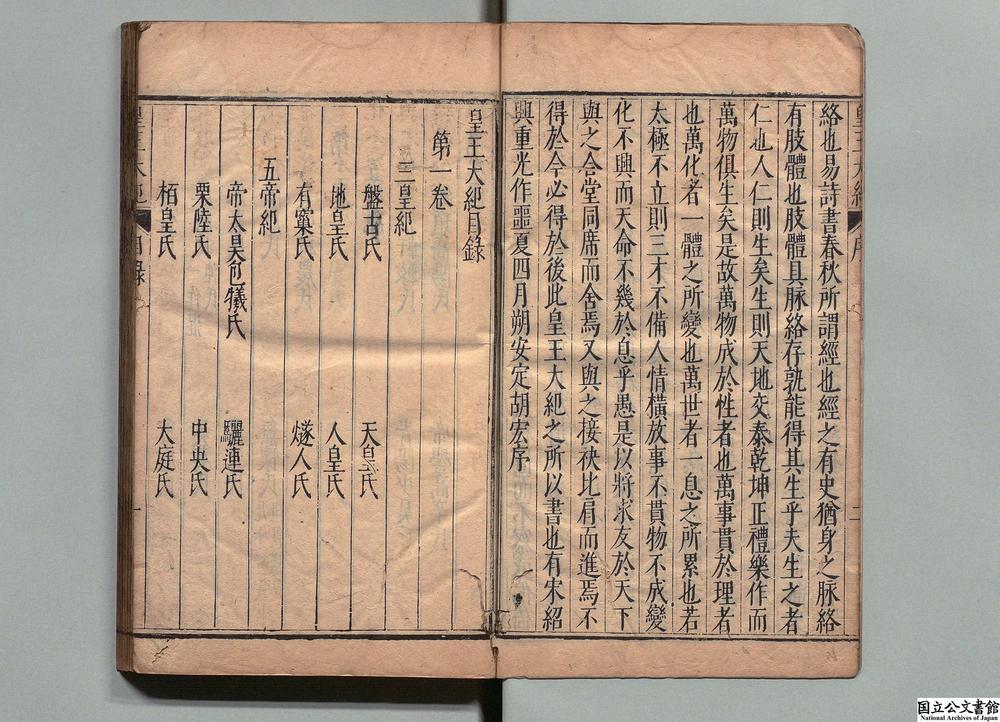 絡也易詩書春秋所謂經也經之有史猶身之脉絡
有肢體也肢體具脉絡存孰能得其生乎夫生之者
仁也人仁則生矣生則天地交泰乾坤正禮樂作而
萬物俱生矣是故萬物成於性者也萬事貫於理者
也萬化者一體之所變也萬世者一息之所累也若
太極不立則三才不備人情橫放事不貫物不成變
化不興而天命不幾於息乎愚是以將求友於天下
與之合堂同席而舍焉又與之接袂比肩而進焉不
得於今必得於後此皇王大紀之所以書也有宋紹
興重光作噩夏四月朔安定胡宏序
皇王大紀目錄
第一卷
三皇紀
盤古氏 天皇氏
地皇氏 人皇氏
有巢氏 燧人氏
五帝紀
帝太昊包犧氏 驪連氏
栗陸氏 中央氏
栢皇氏 大庭氏
皇王大紀 序 二
皇王大紀 目錄 一
国立公文書館
National Archives of Japan